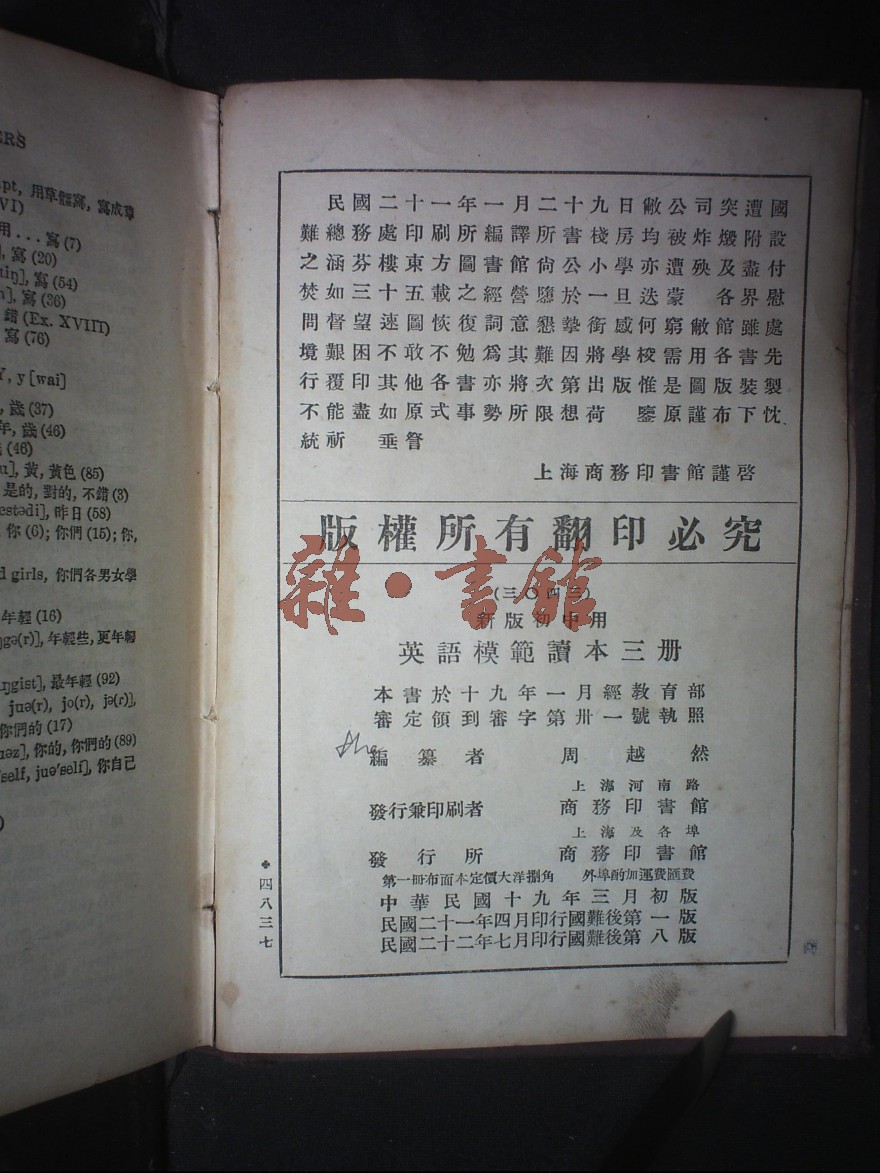 ERS
pt, 用草體寫, 寫成草
VI)
用...寫 (7)
寫 (20)
tiŋ], 寫 (54)
寫 (36)
錯 (Ex. XVIII)
寫 (76)
Y, y [wai]
歲 (37)
年, 歲 (46)
(46)
黃, 黃色 (85)
是的, 對的, 不錯 (3)
estədi], 昨日 (58)
你 (6); 你們 (15); 你,
d girls, 你們各男女學
年輕 (16)
ŋgə(r)], 年輕些, 更年輕
ŋgist], 最年輕 (92)
juə(r), jo(r), jə(r),
你們的 (17)
uəz], 你的, 你們的 (89)
'self, juə'self], 你自己
民國二十一年一月二十九日敝公司突遭國
難總務處印刷所編譯所書棧房均被炸燬附設
之涵芬樓東方圖書館尙公小學亦遭殃及盡付
焚如三十五載之經營隳於一旦迭蒙 各界慰
問督望速圖恢復詞意懇摯銜感何窮敝館雖處
境艱困不敢不勉爲其難因將學校需用各書先
行覆印其他各書亦將次第出版惟是圖版裝製
不能盡如原式事勢所限想荷 鑒原謹布下忱
統祈 垂詧
上海商務印書館謹啓
版權所有翻印必究
雜·書館
(三〇四三)
新版初中用
英語模範讀本三册
本書於十九年一月經教育部
審定領到審字第卅一號執照
編纂者 周越然
上海河南路
發行兼印刷者 商務印書館
上海及各埠
發行所 商務印書館
第一冊布面本定價大洋捌角 外埠酌加運費匯費
中華民國十九年三月初版
民國二十一年四月印行國難後第一版
民國二十二年七月印行國難後第八版
四八三七